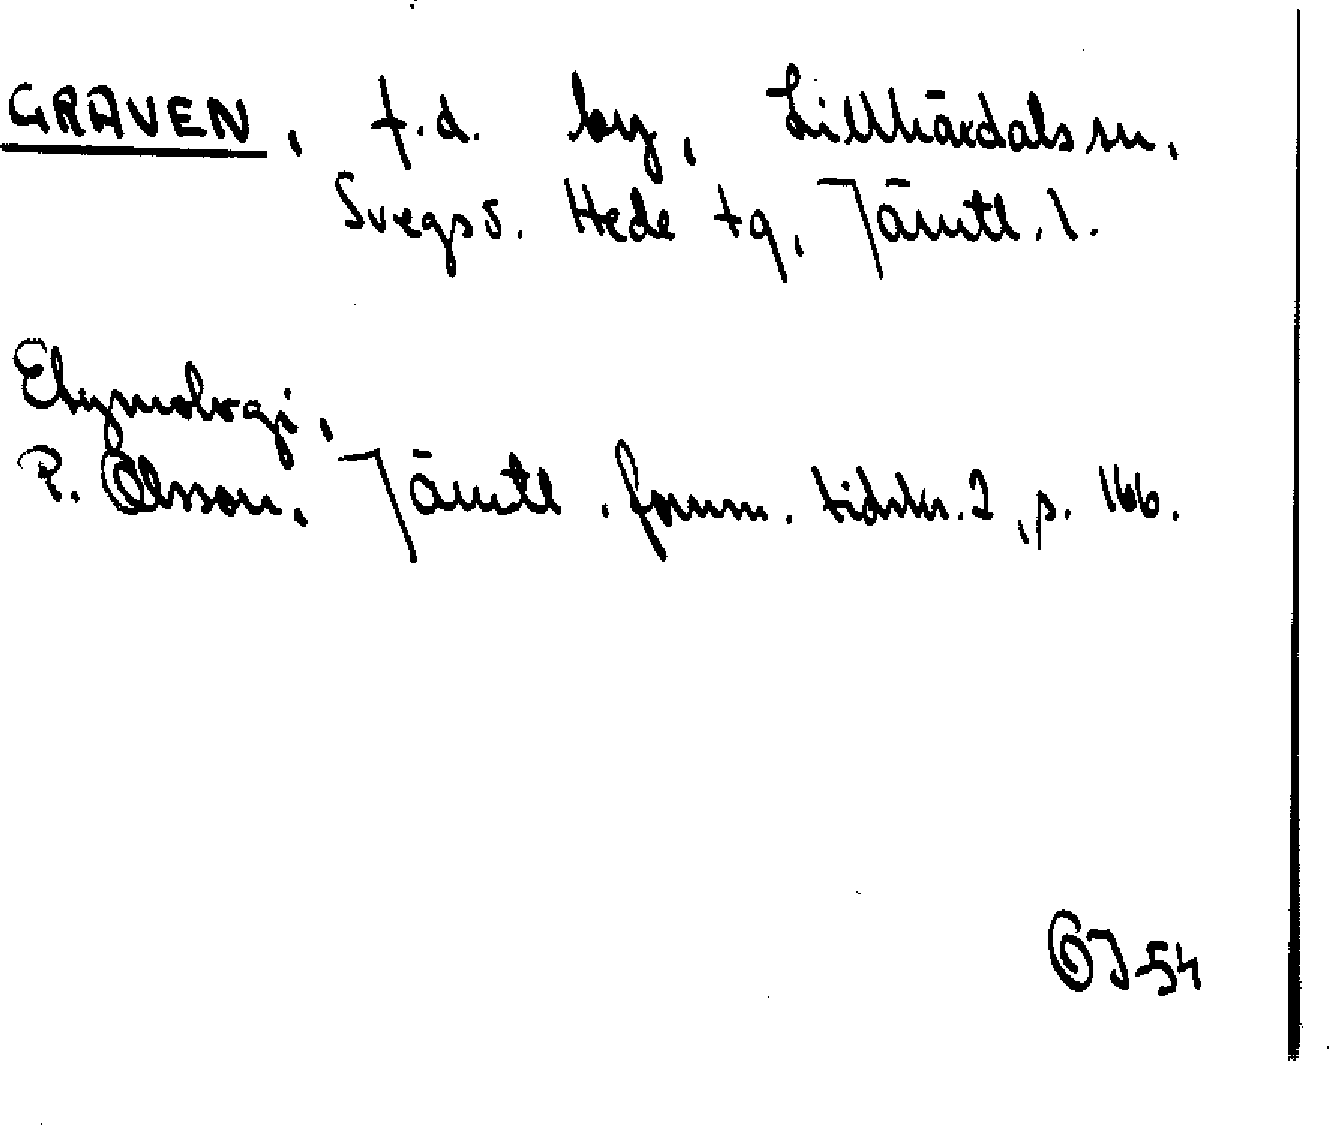 GRAVEN, f.d. by, Lillhärdals sn,
Svegs s. Hede tg, Jämtl. l.
Etymologi,
P. Olsson, Jämtl. fornm. tidskr. 2, p. 166.
OJ-54